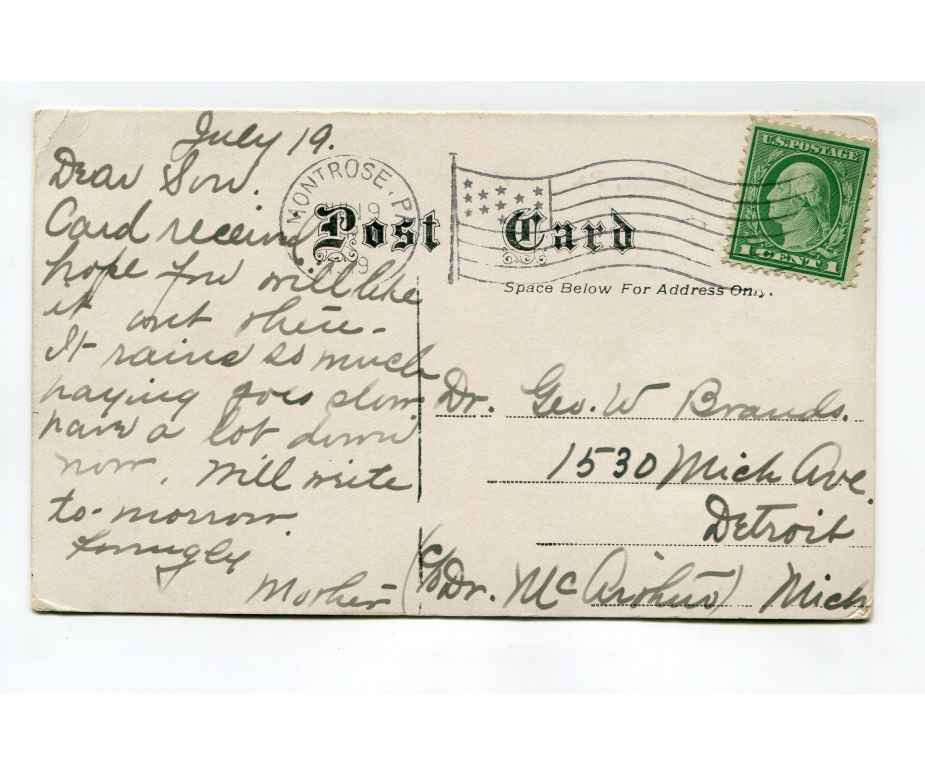 July 19.
Dear Son.
Card received
hope you will like
it out there-
It rains so much
haying goes slow
have a lot down
now. Will write
to-morrow
Lovingly
Mother
MONTROSE, PA.
19
Post Card
Space Below For Address Only.
U.S. POSTAGE
1 CENT 1
Dr. Geo. W Brands.
1530 Mich Ave.
Detroit
(c/o Dr. Mc ) Mich